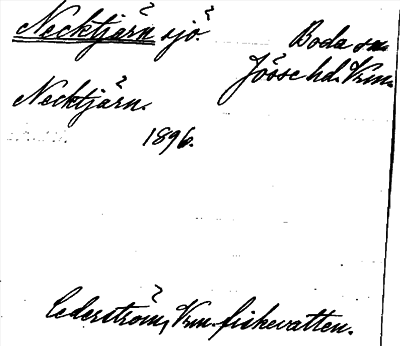 Necktjärn sjö.
Boda sn.
Jösse hd. Vrm.
Necktjärn.
1896.
Cederström, Vrm. fiskevatten.